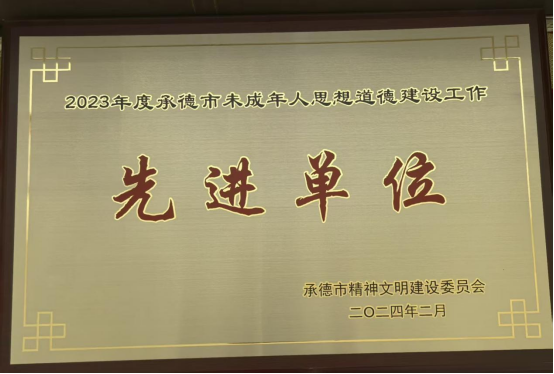 2023年度承德市未成年人思想道德建设工作
先进单位
承德市精神文明建设委员会
二〇二四年二月